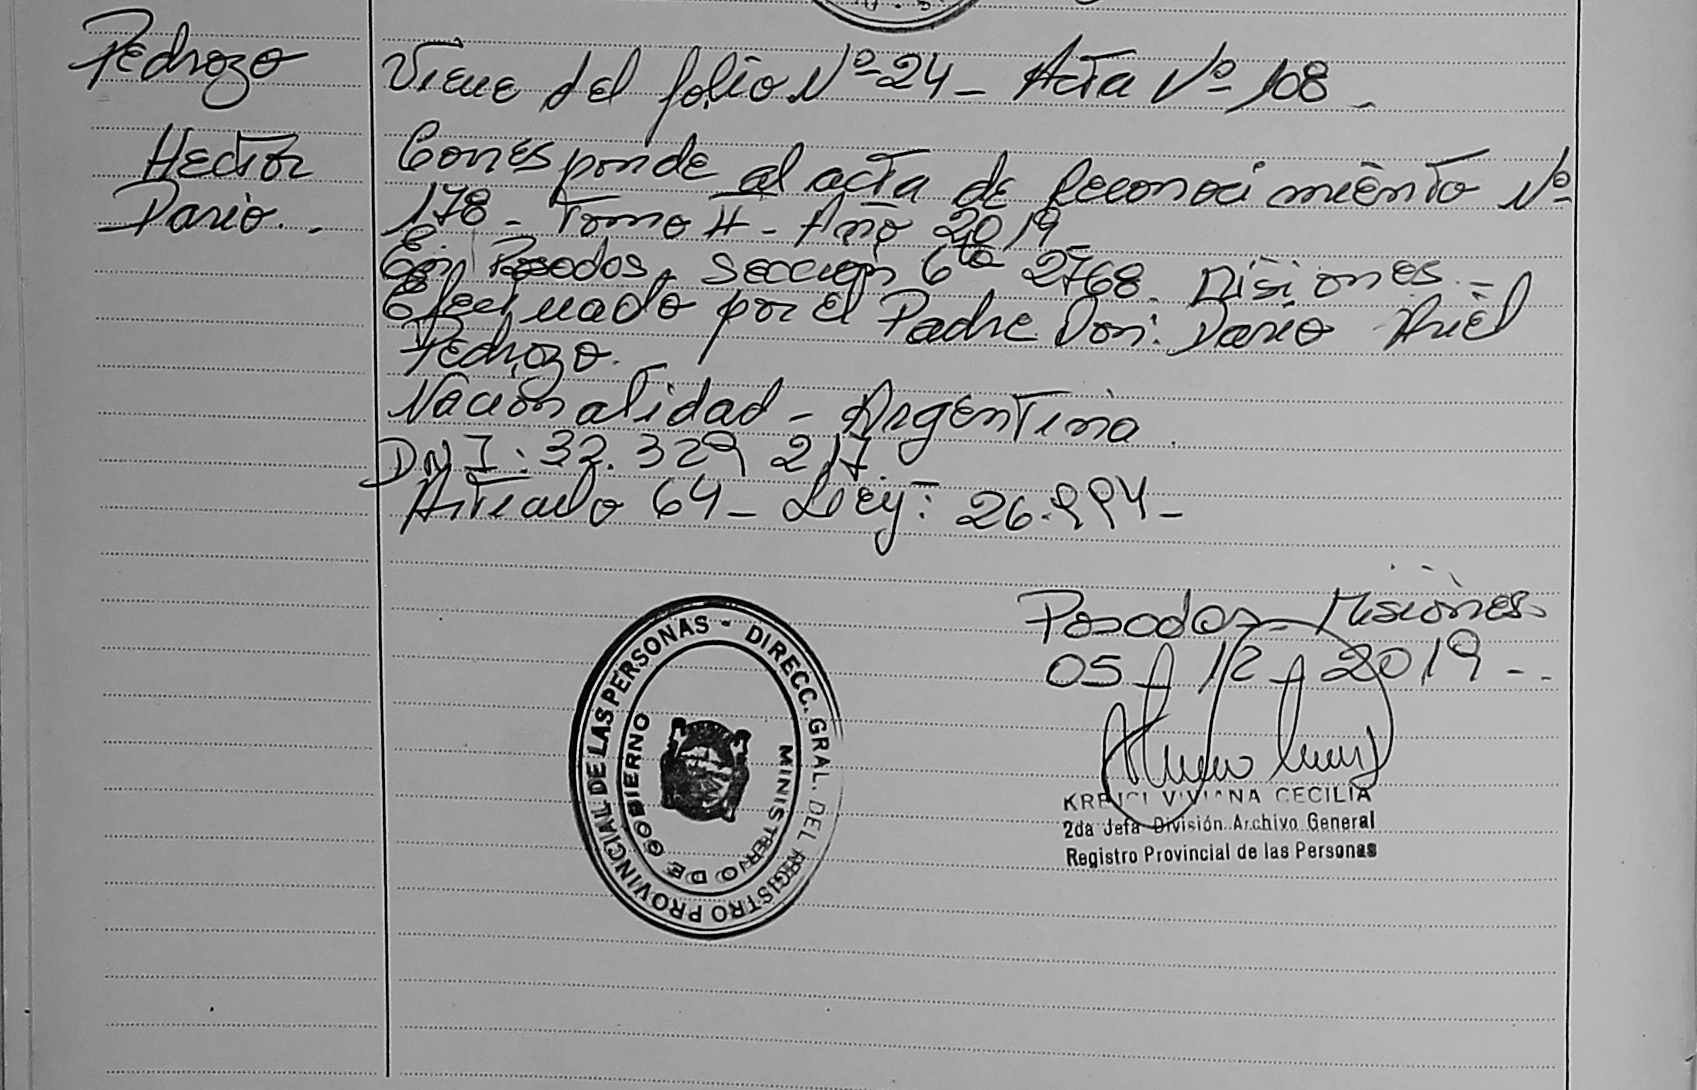 Pedrozo
Hector
Dario..
Viene del folio Nº 24 - Acta Nº 108.
Corresponde al acta de Reconocimiento Nº
178 - Tomo II - Año 2019
En Posadas, Sección 6ta 2768. Misiones -
Efectuado por el Padre Don: Dario Ariel
Pedrozo.
Nacionalidad - Argentina.
DNI: 32.329 217
Articulo 64 - Ley: 26.994-
Posadas - Misiones
05 / 12 / 2019 - .
VIVIANA CECILIA
2da Jefa División Archivo General
Registro Provincial de las Personas
DIRECC. GRAL. DEL REGISTRO PROVINCIAL DE LAS PERSONAS -
MINISTERIO DE GOBIERNO